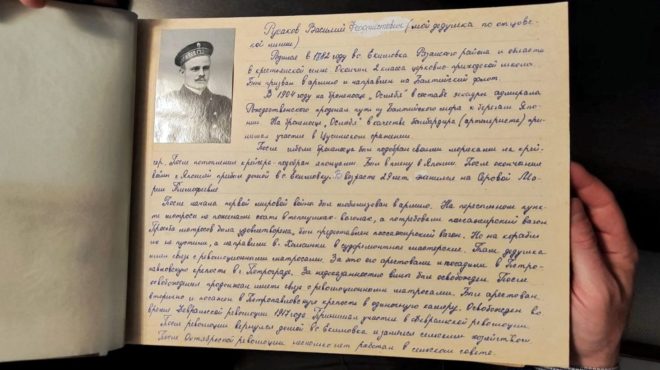 Русаков Василий Феоктистович (мой дедушка по отцовс-
кой линии)
Родился в 1882 году в с. Екимовка Рязанского района и области
в крестьянской семье. Окончил 2 класса церковно-приходской школы.
Был призван в армию и направлен на Балтийский флот.
В 1904 году на броненосце "Ослябя" в составе эскадры адмирала
Рождественского проделал путь из Балтийского моря к берегам Япо-
нии. На броненосце "Ослябя" в качестве бомбардира (артиллериста) при-
нимал участие в Цусимском сражении.
После гибели броненосца был подобран своими моряками на крей-
сер. После потопления крейсера подобран японцами. Был в плену в Японии. После окончания
войны с Японией прибыл домой в с. Екимовку. В возрасте 29 лет женился на Ма-
рии Тимофеевне
После начала первой мировой войны был мобилизован в армию. На пересыльном пунк-
те матросы не пожелали ехать в теплушках-вагонах, а потребовали пассажирский вагон.
Просьба матросов была удовлетворена, был предоставлен пассажирский вагон. Но на корабли
их не пустили, а направили в судоремонтные мастерские. Там дедушка
имел связь с революционными матросами. За это его арестовали и посадили в Петро-
павловскую крепость в г. Петроград. За недоказанностью вины был освобожден. После
освобождения продолжал иметь связь с революционными матросами. Был арестован
вторично и посажен в Петропавловскую крепость в одиночную камеру. Освобожден во
время Февральской революции 1917 года. Принимал участие в Февральской революции.
После революции вернулся домой в с. Екимовка и занялся сельским хозяйством
После Октябрьской революции несколько лет работал в сельском совете.